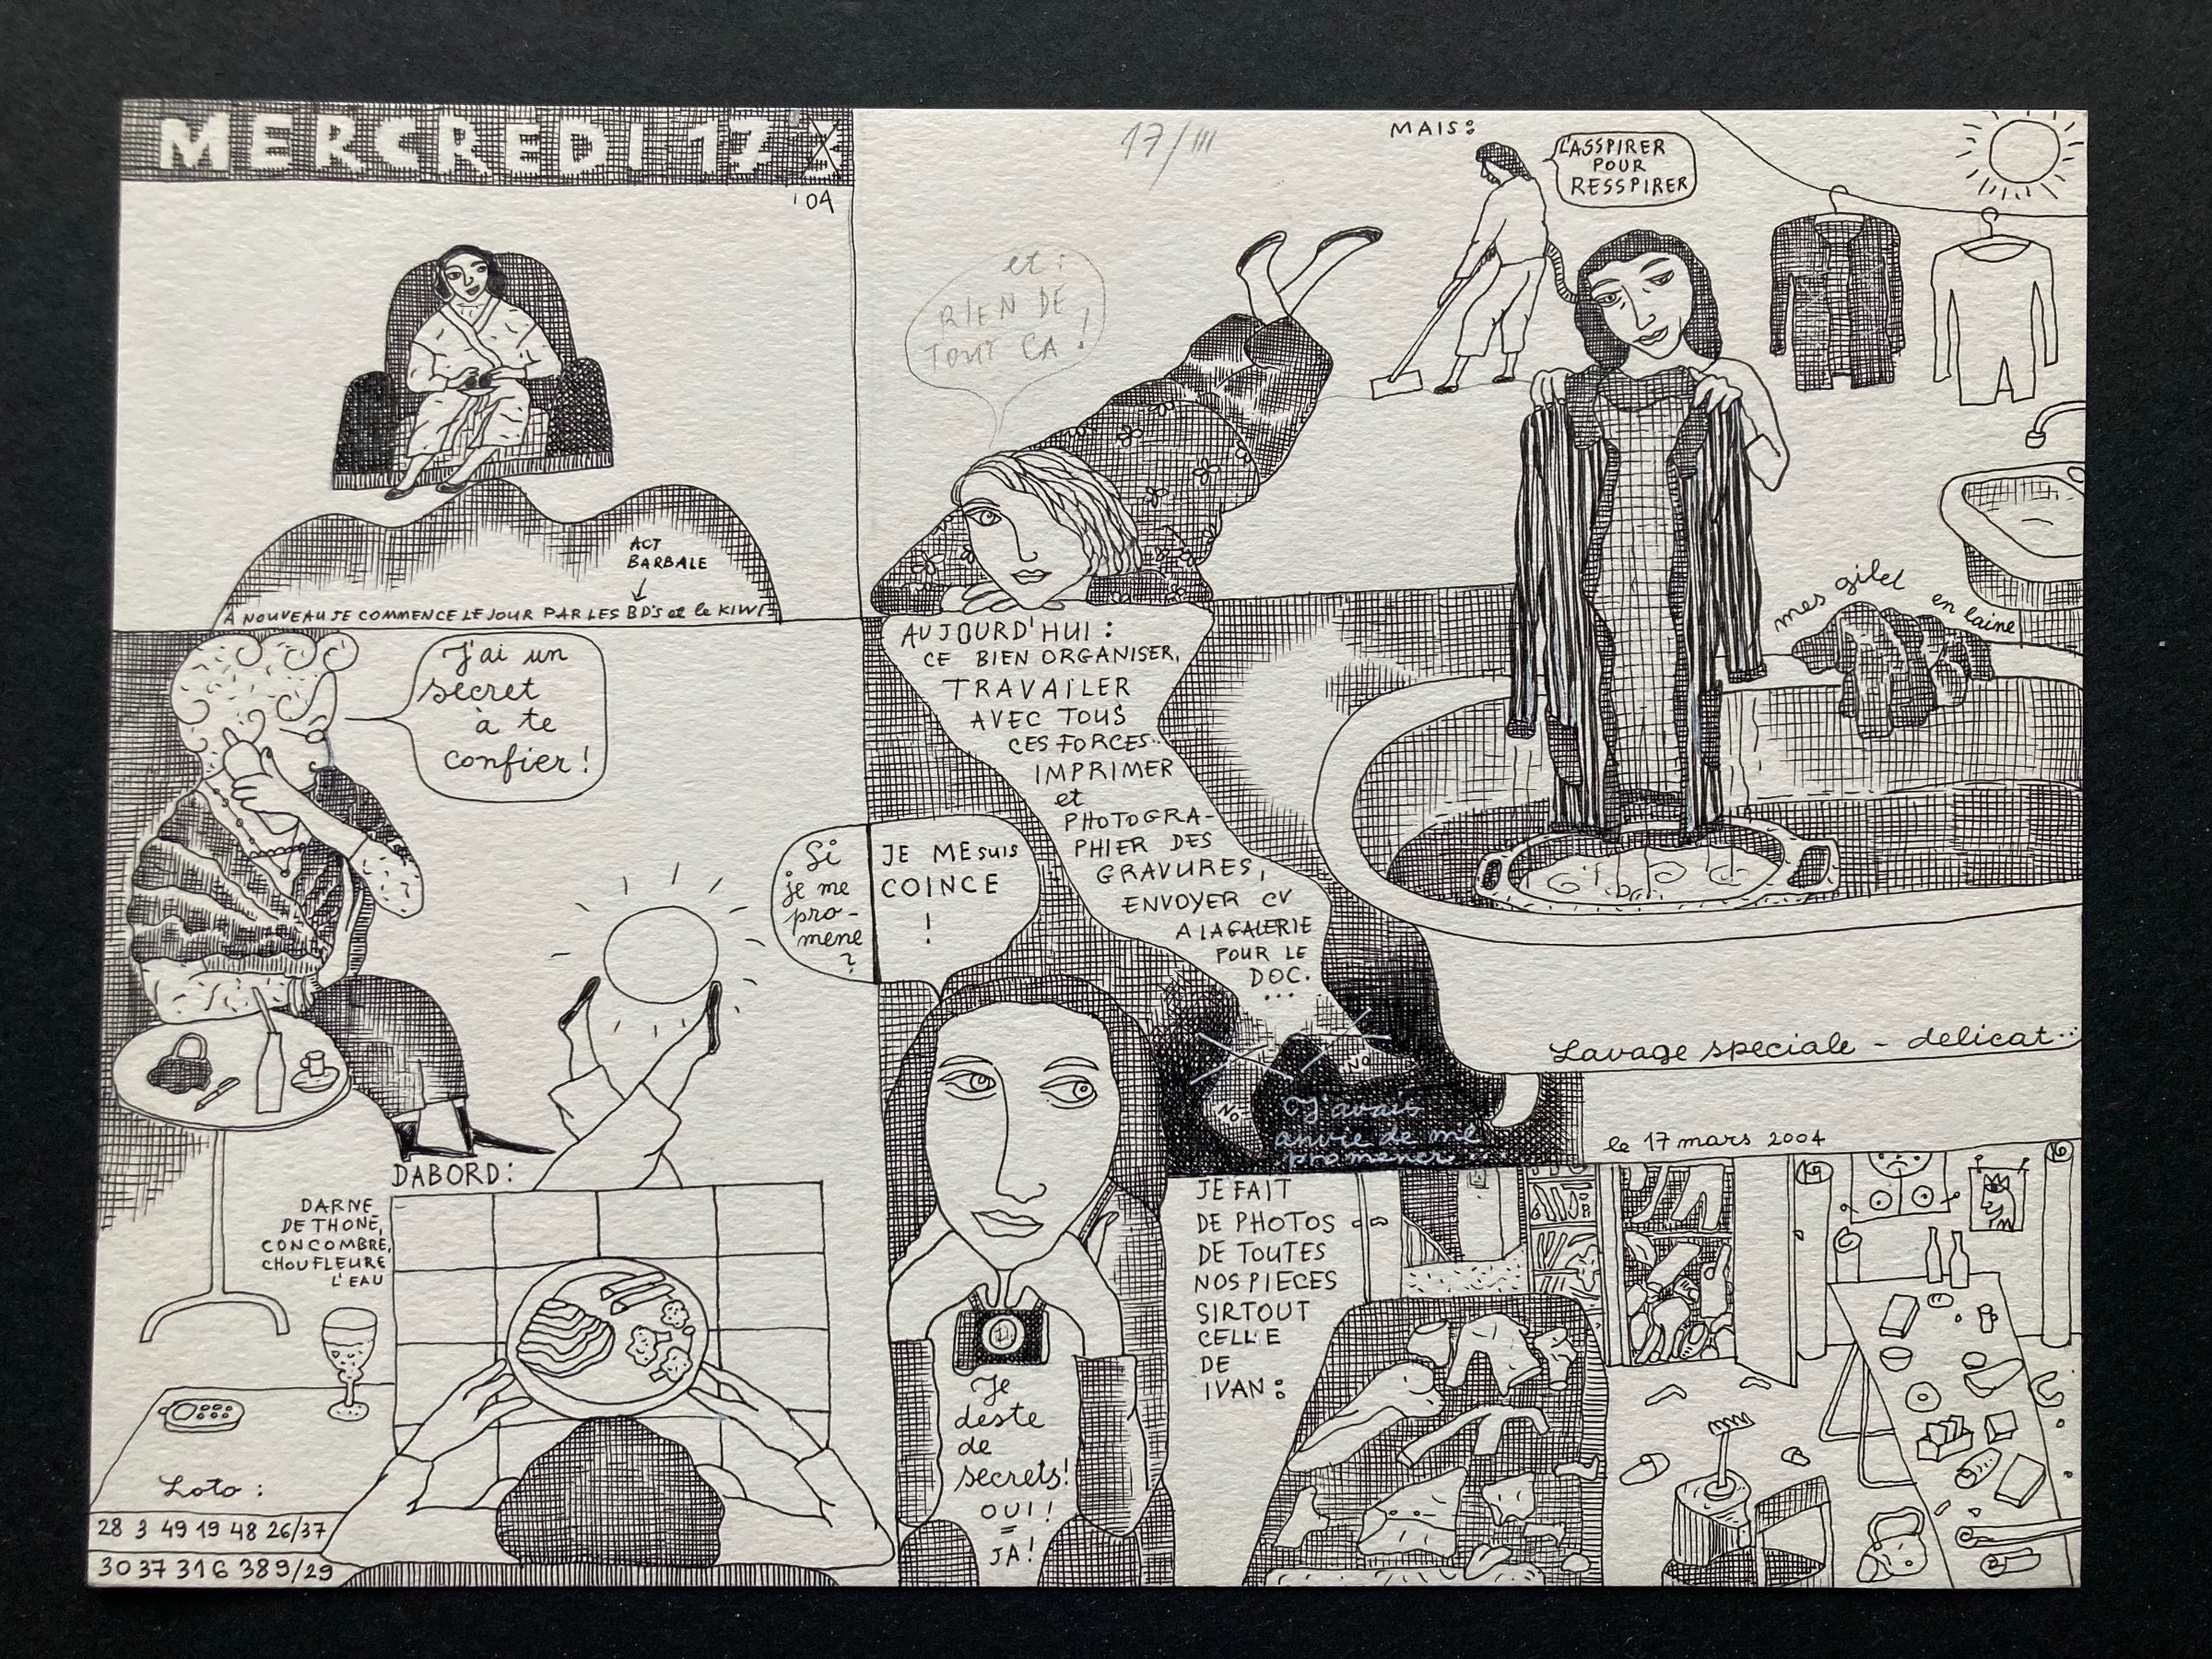 MERCREDI 17
'04
ACT
BARBALE
A NOUVEAU JE COMMENCE LE JOUR PAR LES BD's et le KIWI
17/III
et :
RIEN DE
TOUT CA !
MAIS:
L'ASSPIRER
POUR
RESSPIRER
mes gilet
en laine
J'ai un
secret
à te
confier !
AUJOURD'HUI :
CE BIEN ORGANISER,
TRAVAILER
AVEC TOUS
CES FORCES..
IMPRIMER
et
PHOTOGRA-
PHIER DES
GRAVURES,
ENVOYER CV
A LA GALERIE
POUR LE
DOC.
...
Si
je me
pro-
mene
?
JE ME suis
COINCE
!
NO
NO
J'avais
anvie de me
promener...
Lavage speciale - delicat...
le 17 mars 2004
DABORD:
DARNE
DE THONE,
CONCOMBRE,
CHOUFLEURE
L'EAU
Loto :
28 3 49 19 48 26/37
30 37 31 6 38 9/29
Je
deste
de
secrets!
OUI!
=
JA!
JE FAIT
DE PHOTOS
DE TOUTES
NOS PIECES
SIRTOUT
CELLE
DE
IVAN :